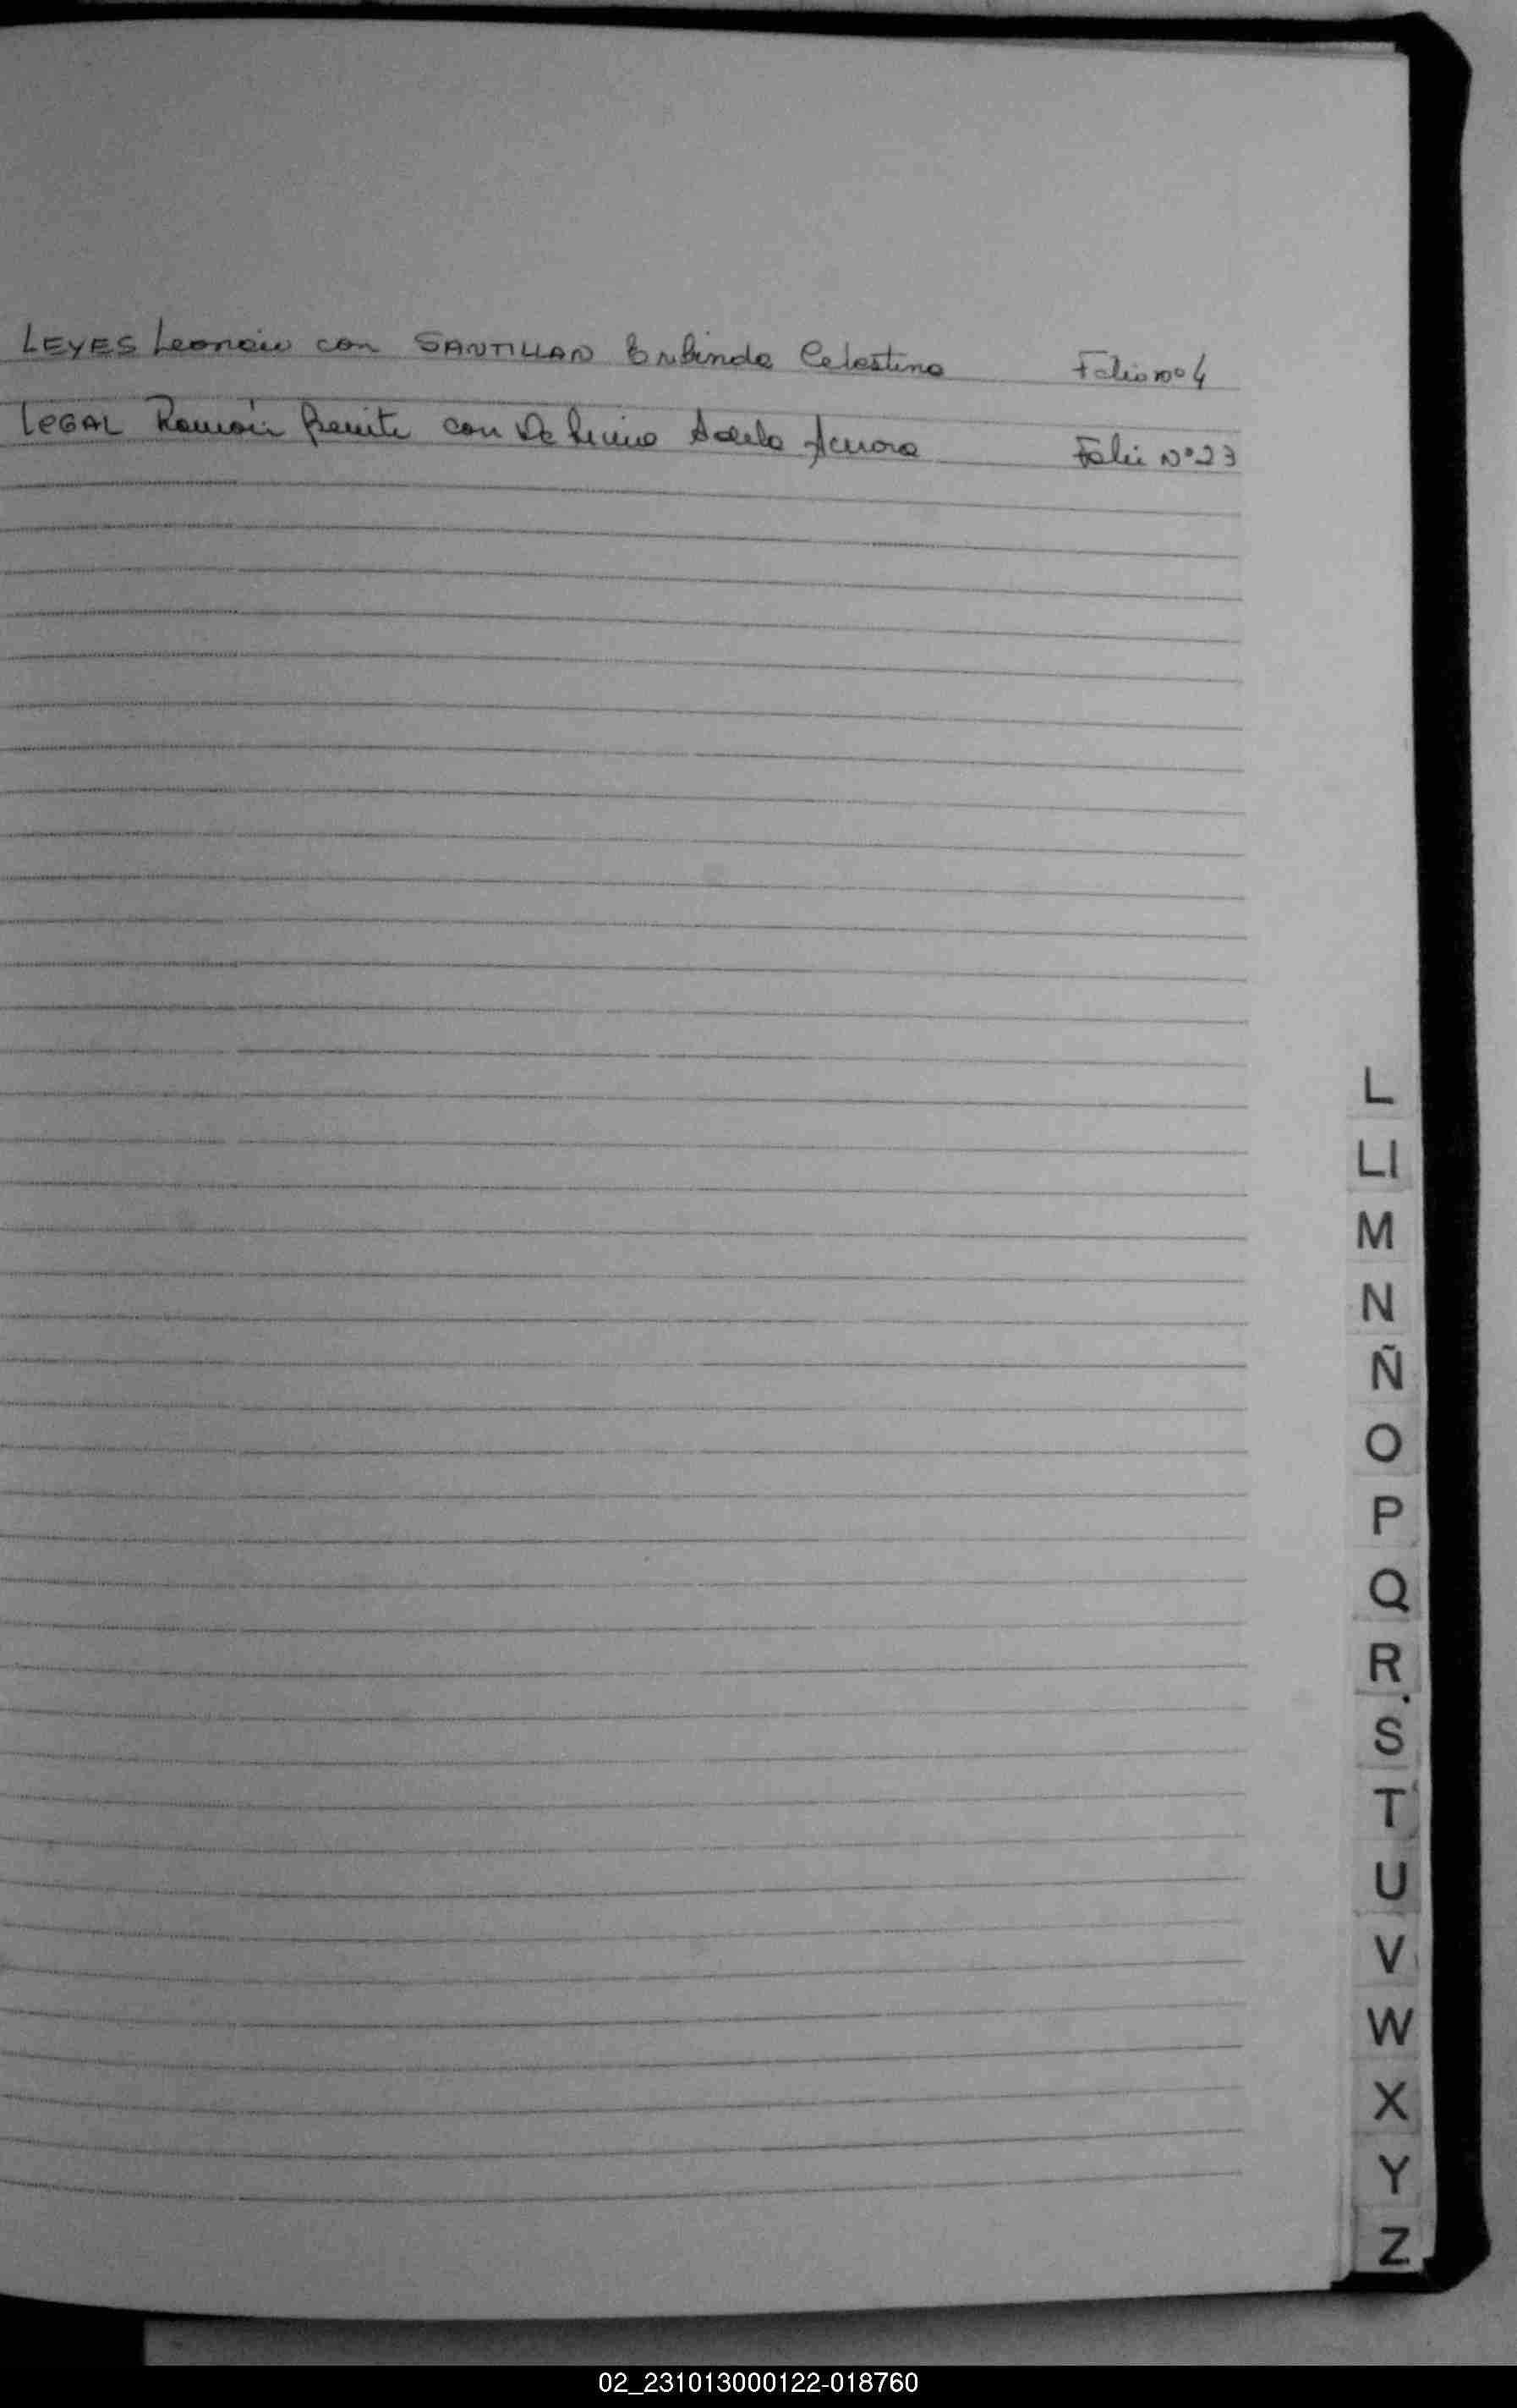 LEYES Leoncio con SANTILLAN Erlinda Celestina Folio nº 4
LEGAL Ramón Benito con De Adela Aurora Folio Nº 23
L
Ll
M
N
Ñ
O
P
Q
R
S
T
U
V
W
X
Y
Z
02_231013000122-018760